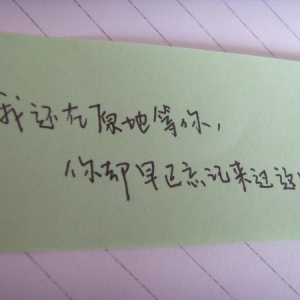 我还在原地等你，
你却早已忘记来过这